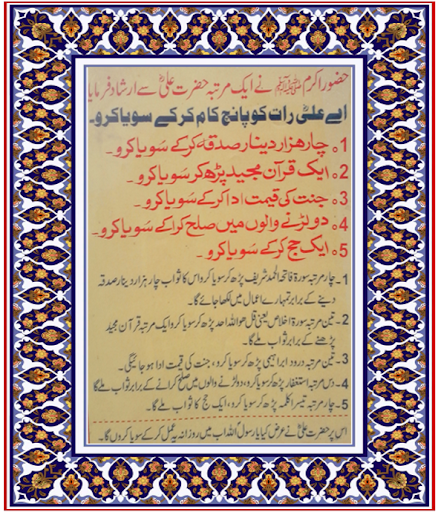 حضور اکرم ﷺ نے ایک مرتبہ حضرت علیؓ سے ارشاد فرمایا
اے علیؓ رات کو پانچ کام کر کے سویا کرو۔
1۔ چار ہزار دینار صدقہ کر کے سویا کرو۔
2۔ ایک قرآن مجید پڑھ کر سویا کرو۔
3۔ جنت کی قیمت ادا کر کے سویا کرو۔
4۔ دو لڑنے والوں میں صلح کرا کے سویا کرو۔
5۔ ایک حج کر کے سویا کرو۔
1۔ چار مرتبہ سورۃ فاتحہ الحمد شریف پڑھ کر سویا کرو اس کا ثواب چار ہزار دینار صدقہ
دینے کے برابر تمہارے اعمال میں لکھا جائے گا۔
2۔ تین مرتبہ سورۃ اخلاص یعنی قل ھو اللہ احد پڑھ کر سویا کرو ایک مرتبہ قرآن مجید
پڑھنے کے برابر ثواب ملے گا۔
3۔ تین مرتبہ درود ابراہیمی پڑھ کر سویا کرو، جنت کی قیمت ادا ہو جائیگی۔
4۔ دس مرتبہ استغفار پڑھ کر سویا کرو، دو لڑنے والوں میں صلح کرانے کے برابر ثواب ملے گا
5۔ چار مرتبہ تیسرا کلمہ پڑھ کر سویا کرو، ایک حج کا ثواب ملے گا۔
اس پر حضرت علیؓ نے عرض کیا یا رسول اللہ اب میں روزانہ یہ عمل کر کے سویا کروں گا۔